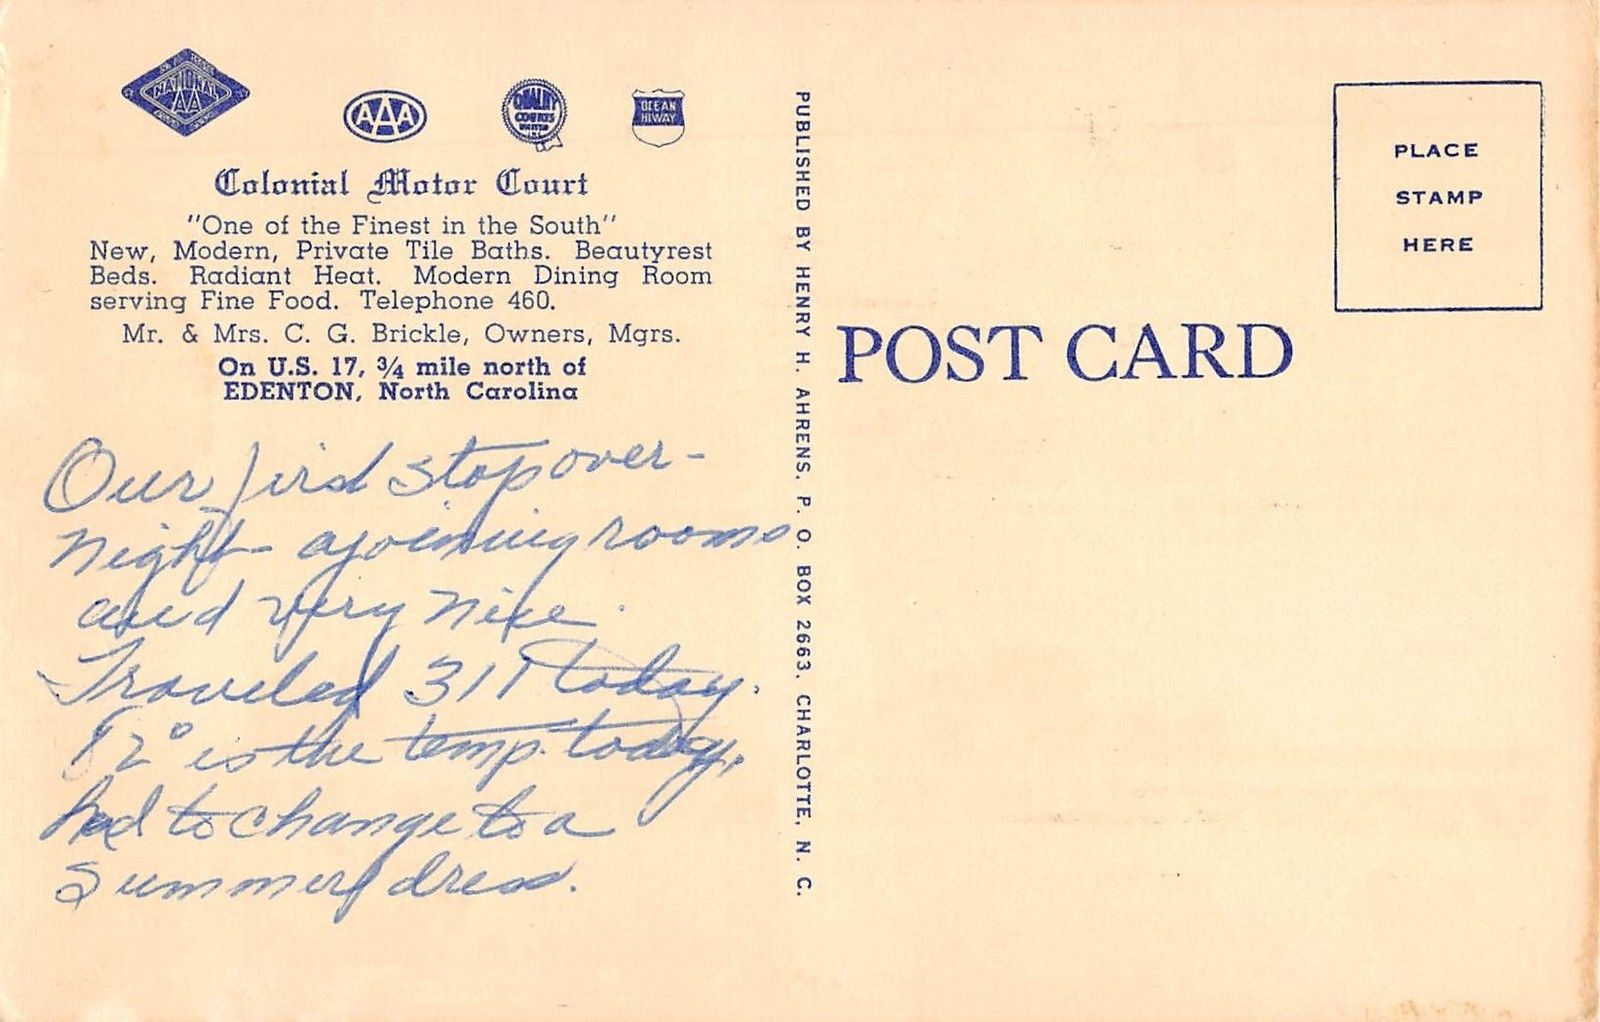 NATIONAL
AA
AAA
QUALITY
COURTS
UNITED
OCEAN
HIWAY
Colonial Motor Court
"One of the Finest in the South"
New, Modern, Private Tile Baths. Beautyrest
Beds. Radiant Heat. Modern Dining Room
serving Fine Food. Telephone 460.
Mr. & Mrs. C. G. Brickle, Owners, Mgrs.
On U.S. 17, ¾ mile north of
EDENTON, North Carolina
Our first stop over-
night - ajoining rooms
and very nice.
Traveled 311 today.
82° is the temp. today,
had to change to a
Summer dress.
PUBLISHED BY HENRY H. AHRENS, P. O. BOX 2663, CHARLOTTE, N. C.
POST CARD
PLACE
STAMP
HERE